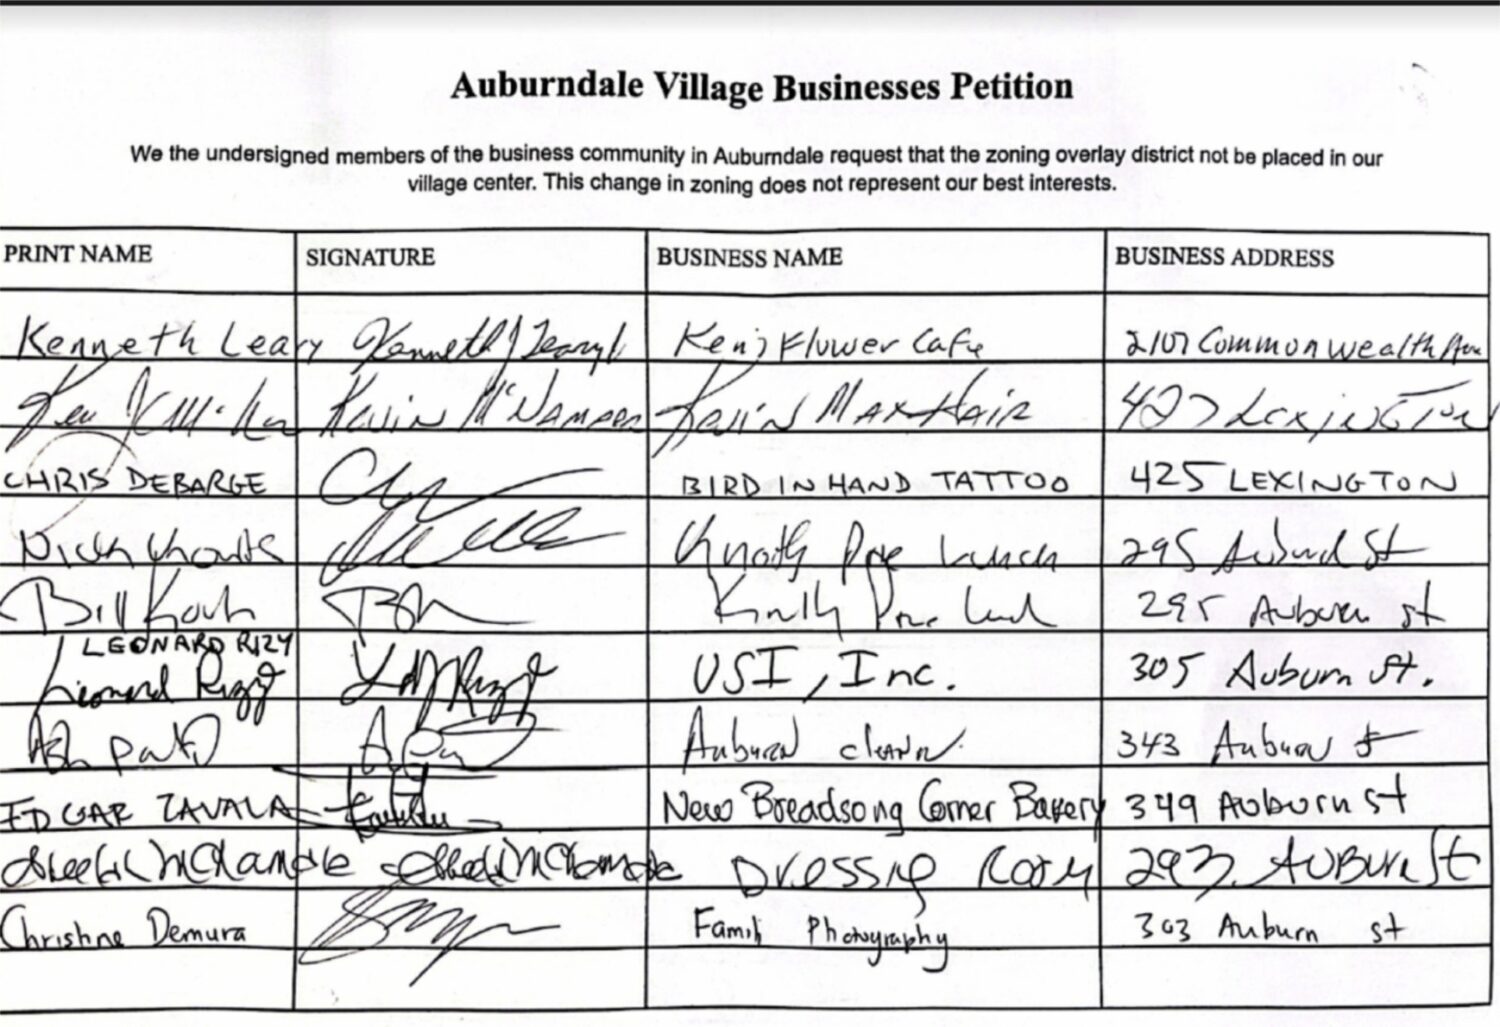 Auburndale Village Businesses Petition
We the undersigned members of the business community in Auburndale request that the zoning overlay district not be placed in our
village center. This change in zoning does not represent our best interests.
PRINT NAME SIGNATURE BUSINESS NAME BUSINESS ADDRESS
Kenneth Leary Kenneth J Leary Ken's Flower Cafe 2107 Commonwealth Ave
Kevin McNamara Kevin Max Hair 427 LEXINGTON
CHRIS DEBARGE BIRD IN HAND TATTOO 425 LEXINGTON
Nick Knotty Pine Lunch 295 Auburn St
Bill Knotty Pine Lunch 295 Auburn St
LEONARD RIZY
Leonard USI, Inc. 305 Auburn St.
Auburn 343 Auburn St
EDGAR ZAVALA New Breadsong Corner Bakery 349 Auburn St
Dressing Room 293 AUBURN St
Christine Demura Family Photography 303 Auburn St